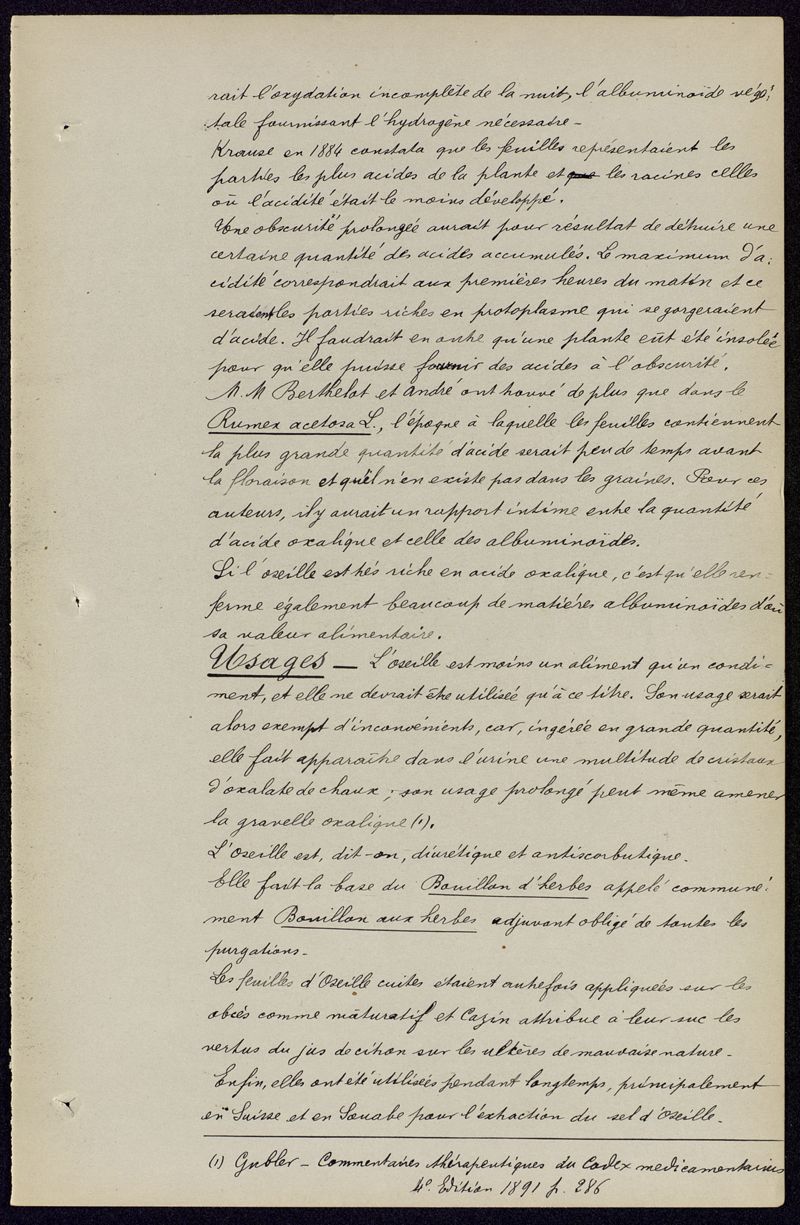 rait l'oxydation incomplète de la nuit, l'albuminoïde végé-
tale fournissant l'hydrogène nécessaire -
Krause en 1884 constata que les feuilles représentaient les
parties les plus acides de la plante et que les racines celles
où l'acidité était le moins développé.
Une obscurité prolongée aurait pour résultat de détruire une
certaine quantité des acides accumulés. Le maximum d'a-
cidité correspondrait aux premières heures du matin et ce
seraient les parties riches en protoplasme qui se gorgeraient
d'acide. Il faudrait en outre qu'une plante eût été insolée
pour qu'elle puisse fournir des acides à l'obscurité.
M. M Berthelot et André ont trouvé de plus que dans le
Rumex acetosa L., l'époque à laquelle les feuilles contiennent
la plus grande quantité d'acide serait peu de temps avant
la floraison et qu'il n'en existe pas dans les graines. Pour ces
auteurs, il y aurait un rapport intime entre la quantité
d'acide oxalique et celle des albuminoïdes.
Si l'oseille est très riche en acide oxalique, c'est qu'elle ren-
ferme également beaucoup de matières albuminoïdes d'où
sa valeur alimentaire.
Usages — L'oseille est moins un aliment qu'un condi-
ment, et elle ne devrait être utilisée qu'à ce titre. Son usage serait
alors exempt d'inconvénients, car, ingérée en grande quantité,
elle fait apparaître dans l'urine une multitude de cristaux
d'oxalate de chaux ; son usage prolongé peut même amener
la gravelle oxalique (1).
L'Oseille est, dit-on, diurétique et antiscorbutique.
Elle fait la base du Bouillon d'herbes appelé communé-
ment Bouillon aux herbes adjuvant obligé de toutes les
purgations -
Les feuilles d'Oseille cuites étaient autrefois appliquées sur les
abcès comme maturatif et Cazin attribue à leur suc les
vertus du jus de citron sur les ulcères de mauvaise nature -
Enfin, elles ont été utilisées pendant longtemps, principalement
en Suisse et en Souabe pour l'extraction du sel d'Oseille -
(1) Gubler - Commentaires thérapeutiques du Codex medicamentarius
4e Edition 1891 p. 286